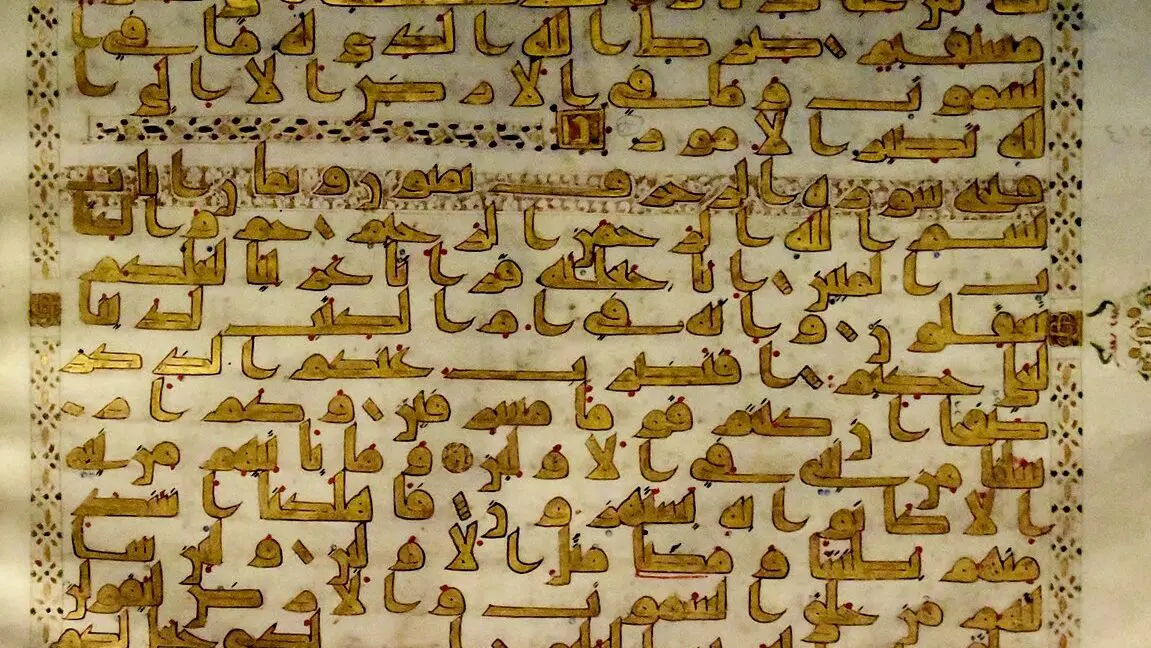 مستقيم صرط الله الذي له ما في ا
لسموت وما في الارض الا الى ا
لله تصير الامور
فتحه سوره الزخرف ثمنون وثمان ايات
بسم الله الرحمن الرحيم حم والكتـ
ـب المبين انا جعلنه قرانا عربيا لعلكم
تعقلون وانه في ام الكتب لدينا
لعلي حكيم افنضرب عنكم الذكر
صفحا ان كنتم قوما مسرفين وكم ار
سلنا من نبي في الاولين وما ياتيهم من نبي
الا كانوا به يستهزون فاهلكنا اشد
منهم بطشا ومضى مثل الاولين ولين سا
لتهم من خلق السموت والارض ليقولن